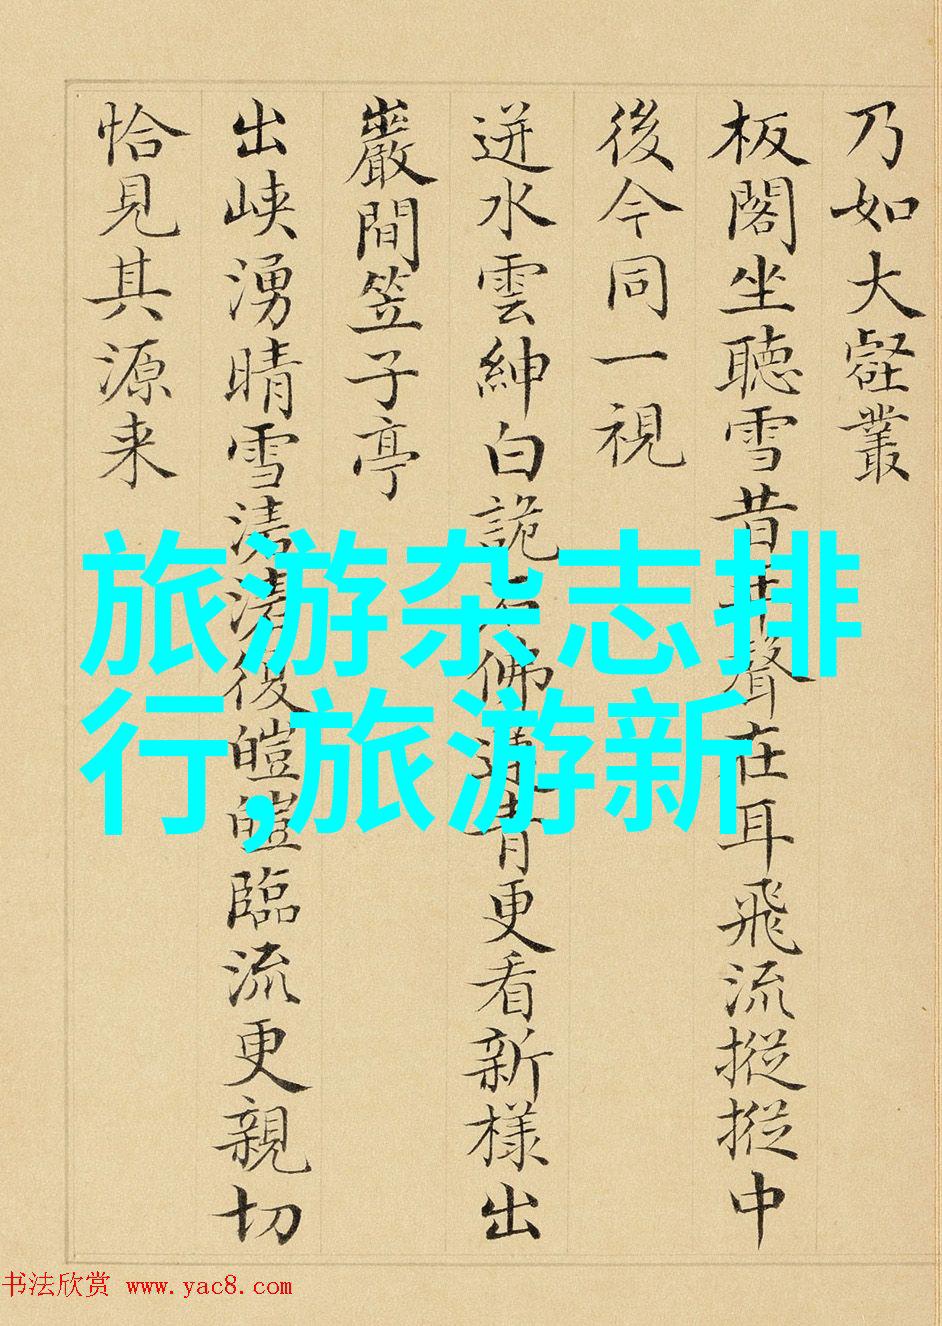 乃如大壑叢
板閣坐聽雪昔年聲在耳飛流摐摐中
後今同一視
迸水雲紳白詭石佛青更看新樣出
巖間笠子亭
出峡湧晴雪清清復皚皚臨流更親切
恰見其源来
旅游杂志排
行,旅游新
书法欣赏 www.yac8.com